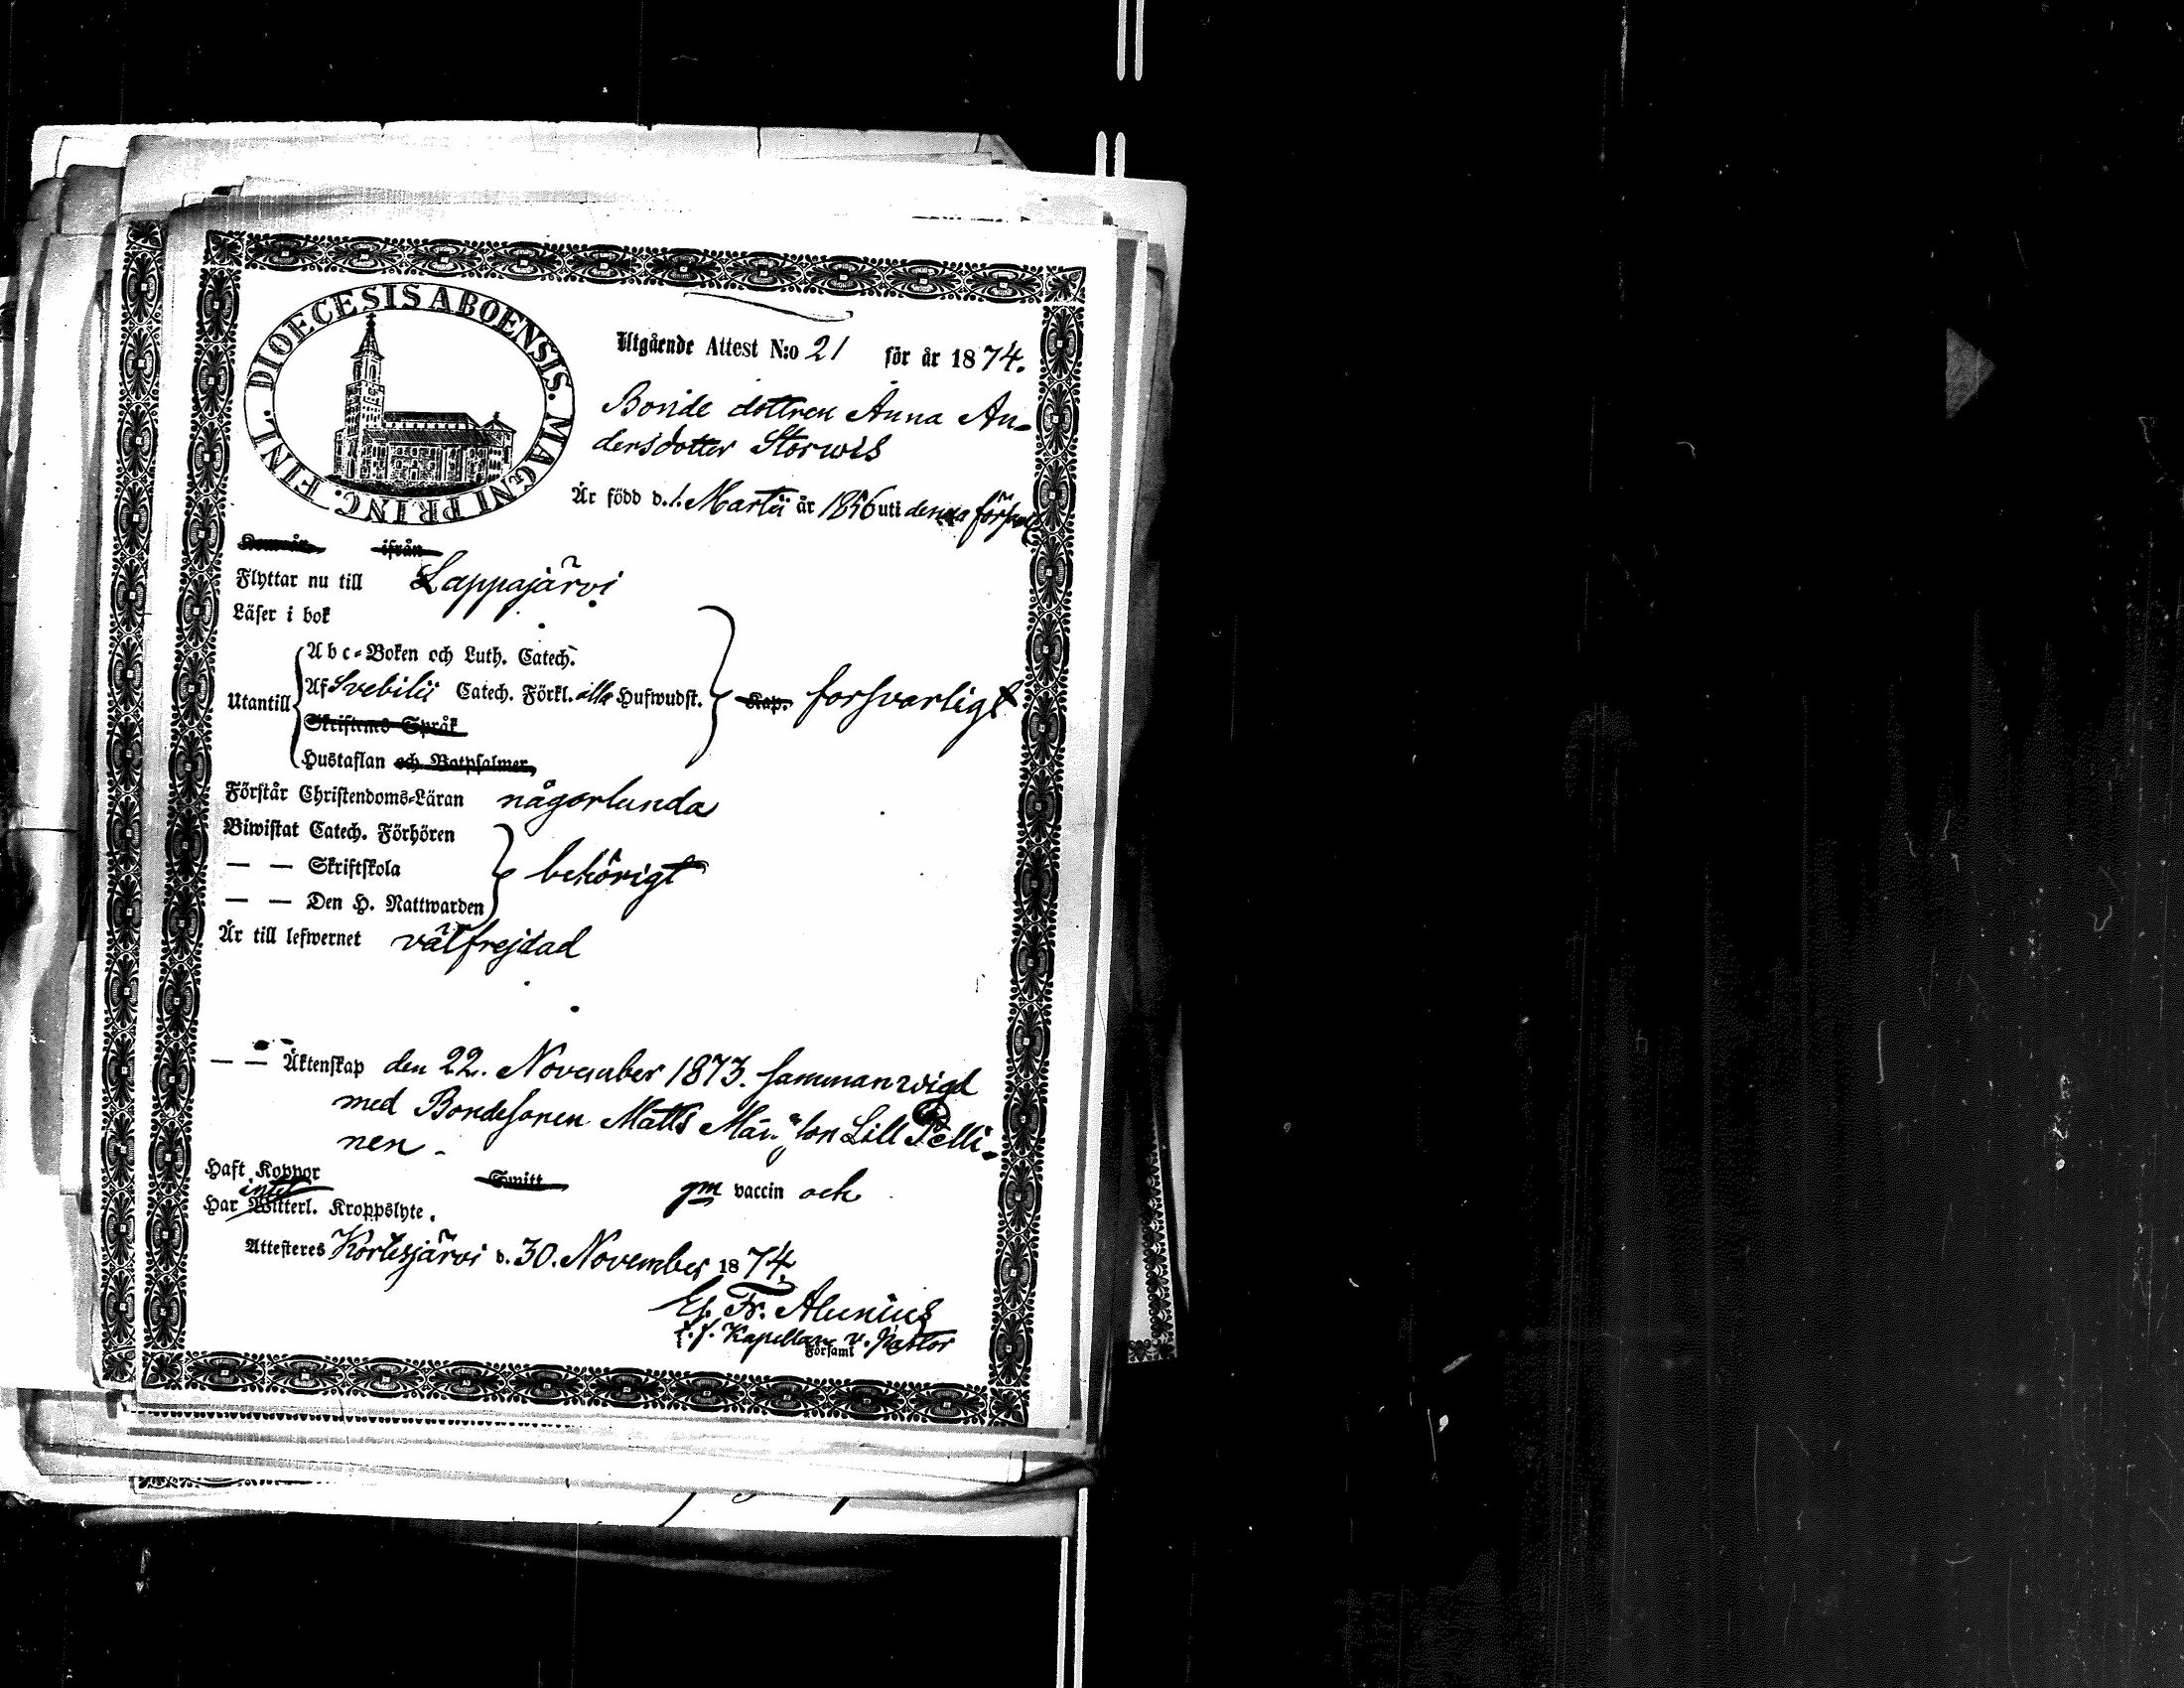 DIOECESIS ABOENSIS. MAGNI PRINC. FINL.
Utgående Attest N:o 21 för år 1874.
Bonde dottren Anna An-
dersdotter Storwis
Är född d. 1. Martii år 1856 uti denna förs
Kom år ifrån
Flyttar nu till Lappajärvi
Läser i bok
Abc-Boken och Luth. Catech.
Utantill Af Svebilii Catech. Förkl. alla Hufwudst. Kap. forsvarligt
Skriftens Språk
Hustaflan och Botpsalmer
Förstår Christendoms-Läran någorlunda
Biwistat Catech. Förhören
— — Skriftskola behörigt
— — Den H. Nattwarden
Är till lefwernet välfrejdad
— — Äktenskap den 22. November 1873. sammanvigd
med Bondesonen Matts Mat. son Lill Pelli-
nen.
Haft Koppor Smitt gm vaccin och
intet
Har Witterl. Kroppslyte.
Attesteres Kortesjärvi d. 30. November 1874
Fr. Alunius
Kapellan v. Pastor
Församl